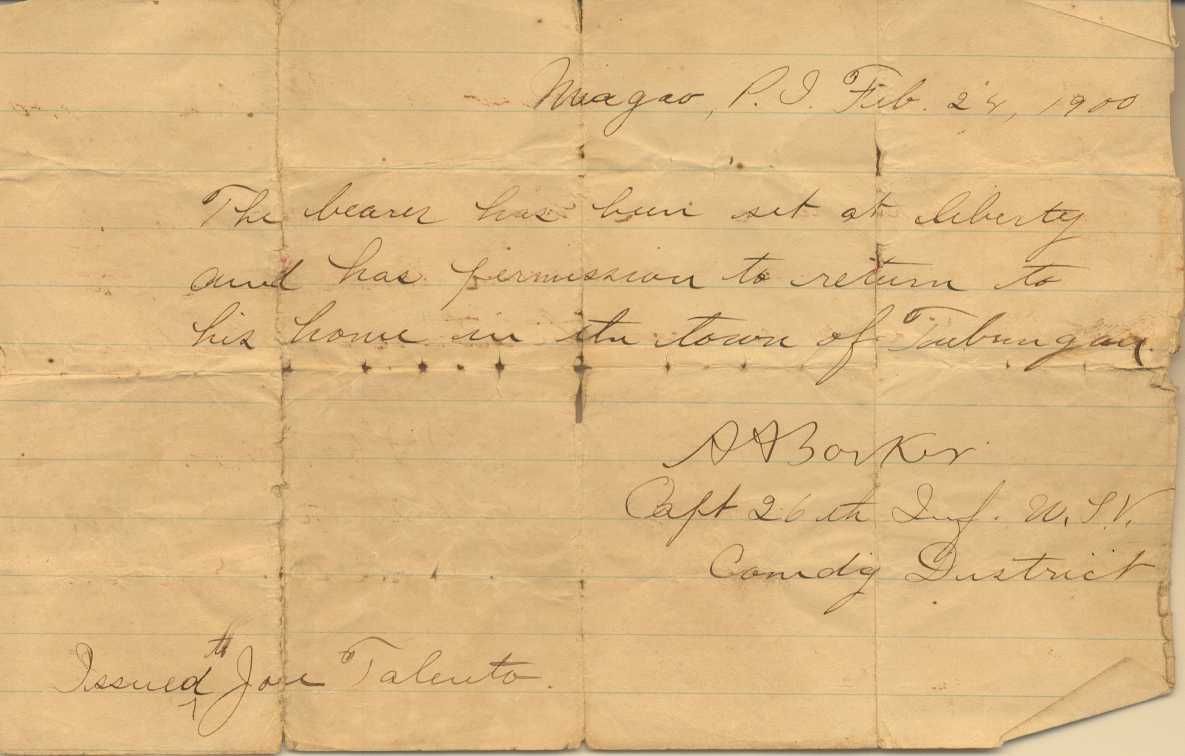 Miagao, P. I. Feb. 24, 1900
The bearer has been set at liberty
and has permission to return to
his home in the town of Tubungan.
A A Barker
Capt 26th Inf. U.S.V.
Comdg District
to
Issued Jose Talento.